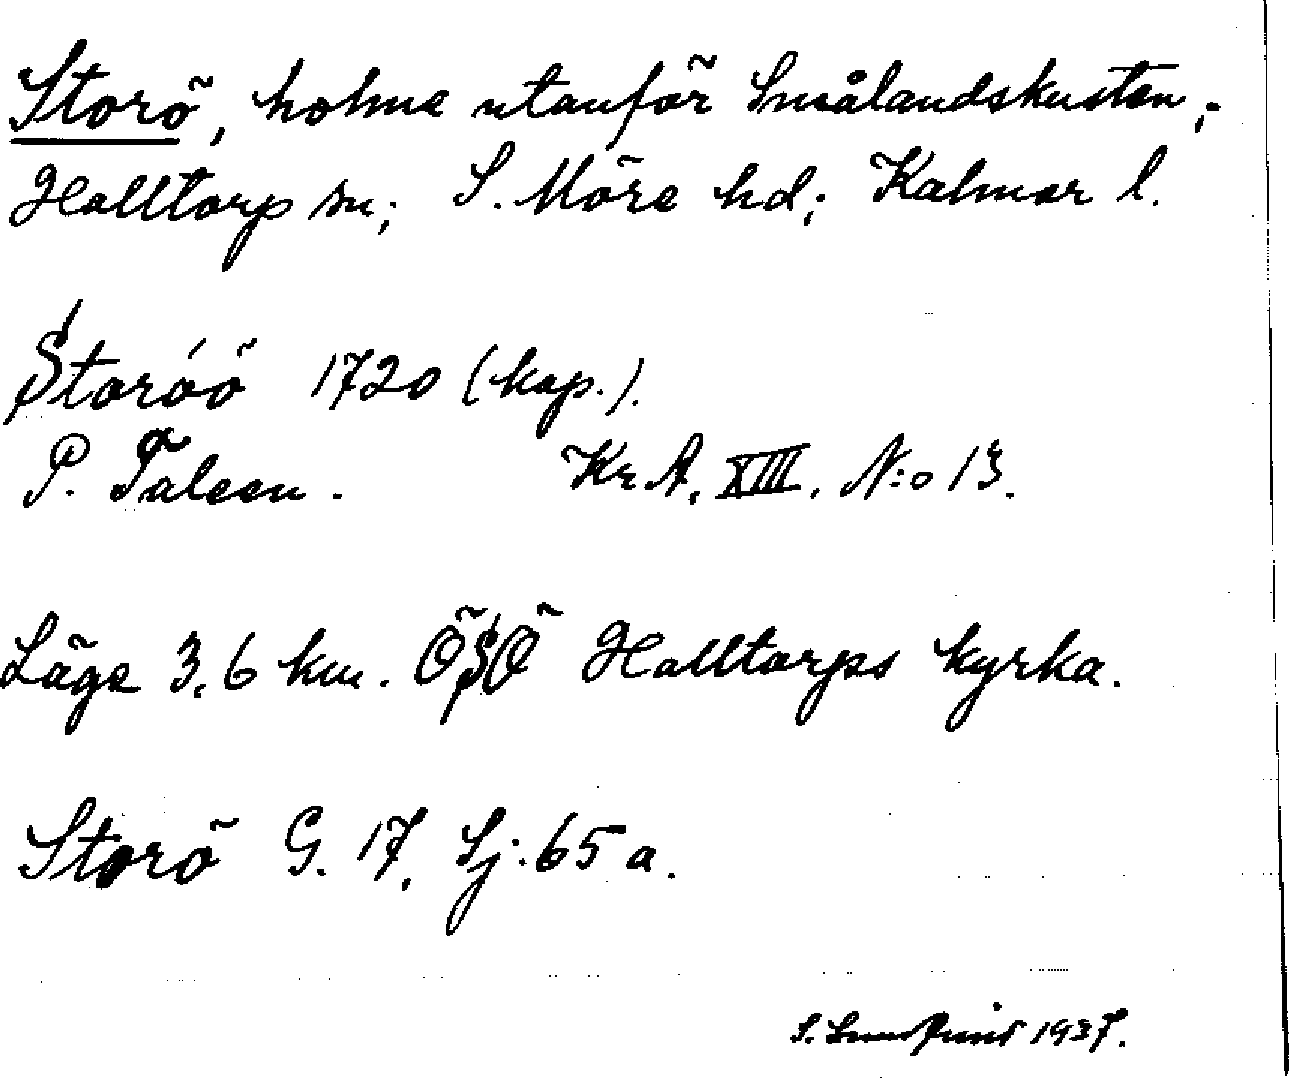 Storö, holme utanför Smålandskusten;
Halltorp sn; S. Möre hd; Kalmar l.
Storöö 1720 (kop.).
P. Taleen. Kr. A. XIII. N:o 13.
Läge 3,6 km. ÖSÖ Halltorps kyrka.
Storö G. 17. Sj. 65 a.
S. 1937.